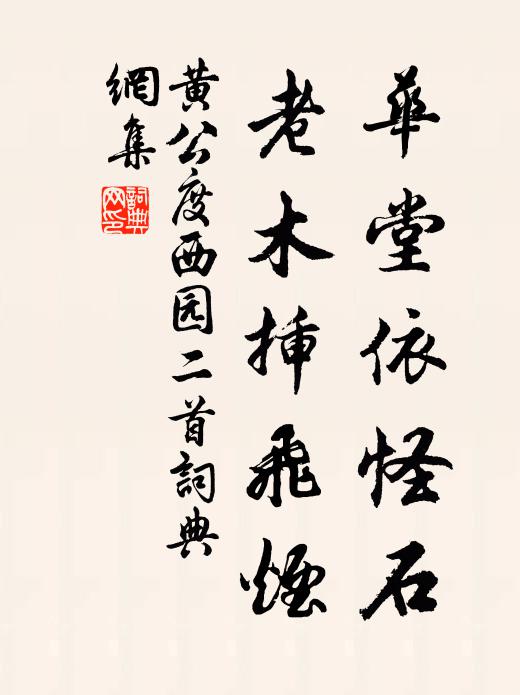 華堂依怪石
老木插飛煙
黄公度西园二首詞典
網集
詞典
网印